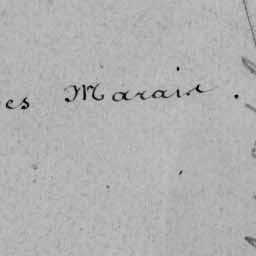 es Marais.